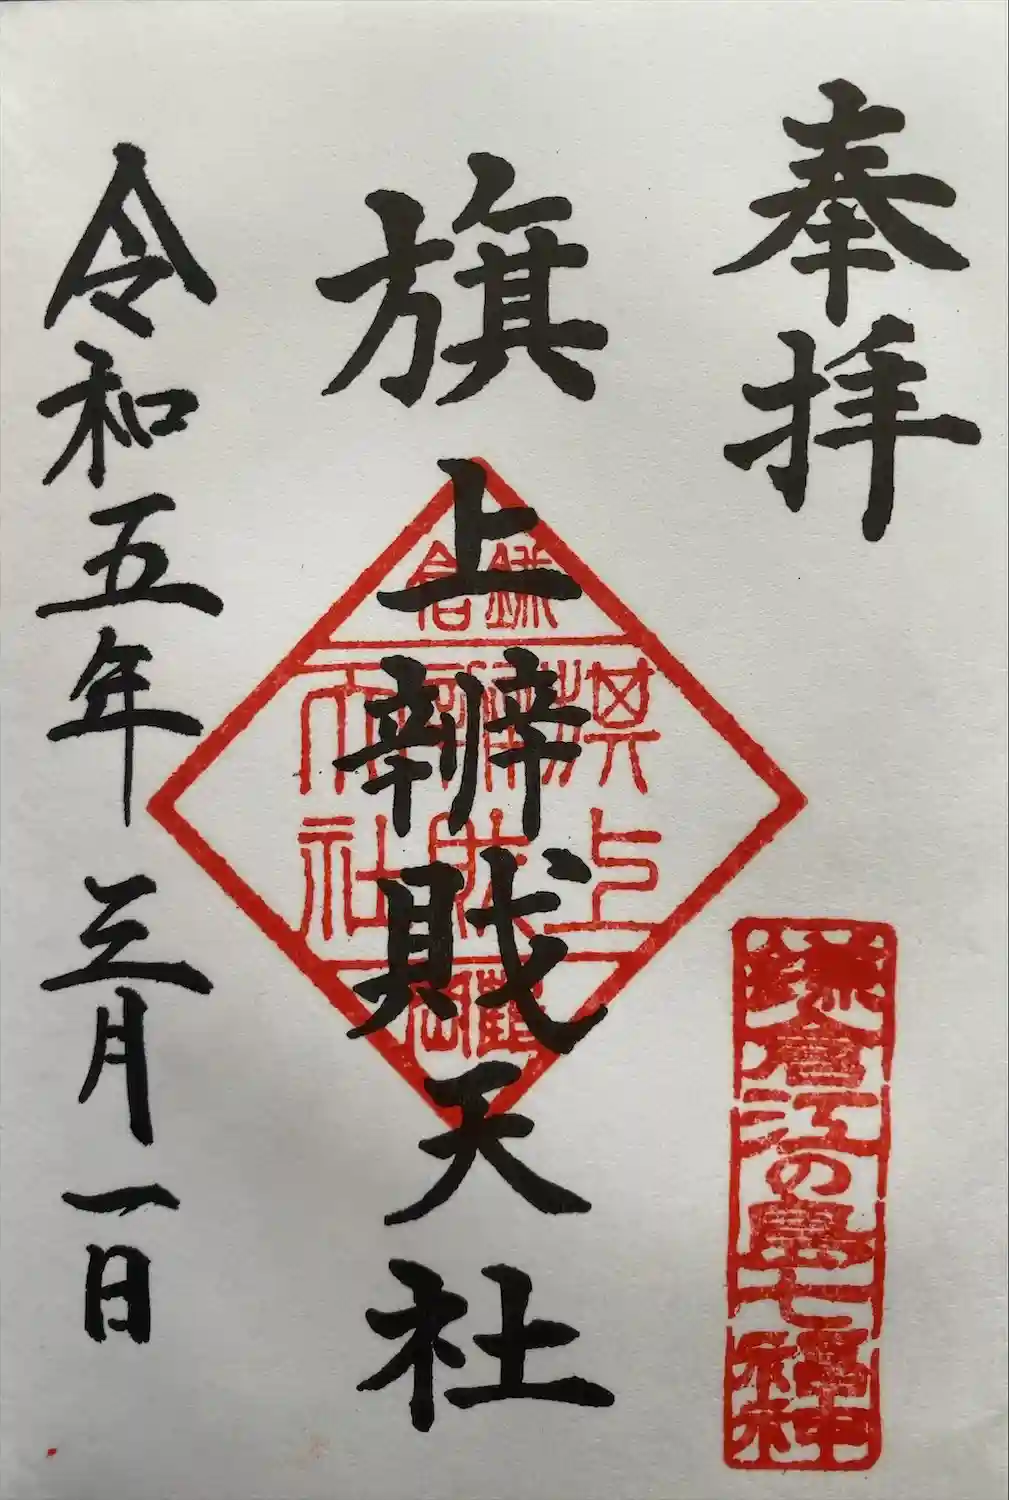 奉拝
鎌倉江の嶋七福神
旗上辨財天社
鎌倉
旗上
辨財
天社
令和五年三月一日